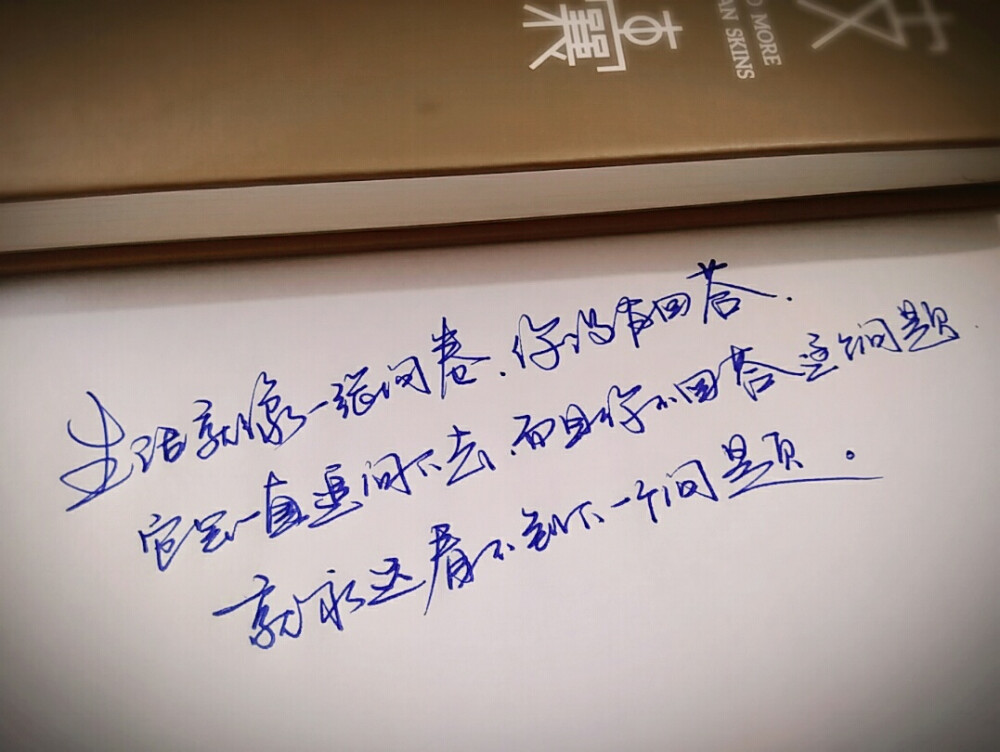 MORE
AN SKINS
生活就像一张问卷,你没有回答.
它会一直追问下去,而且你不回答这个问题
就永远看不到下一个问题。